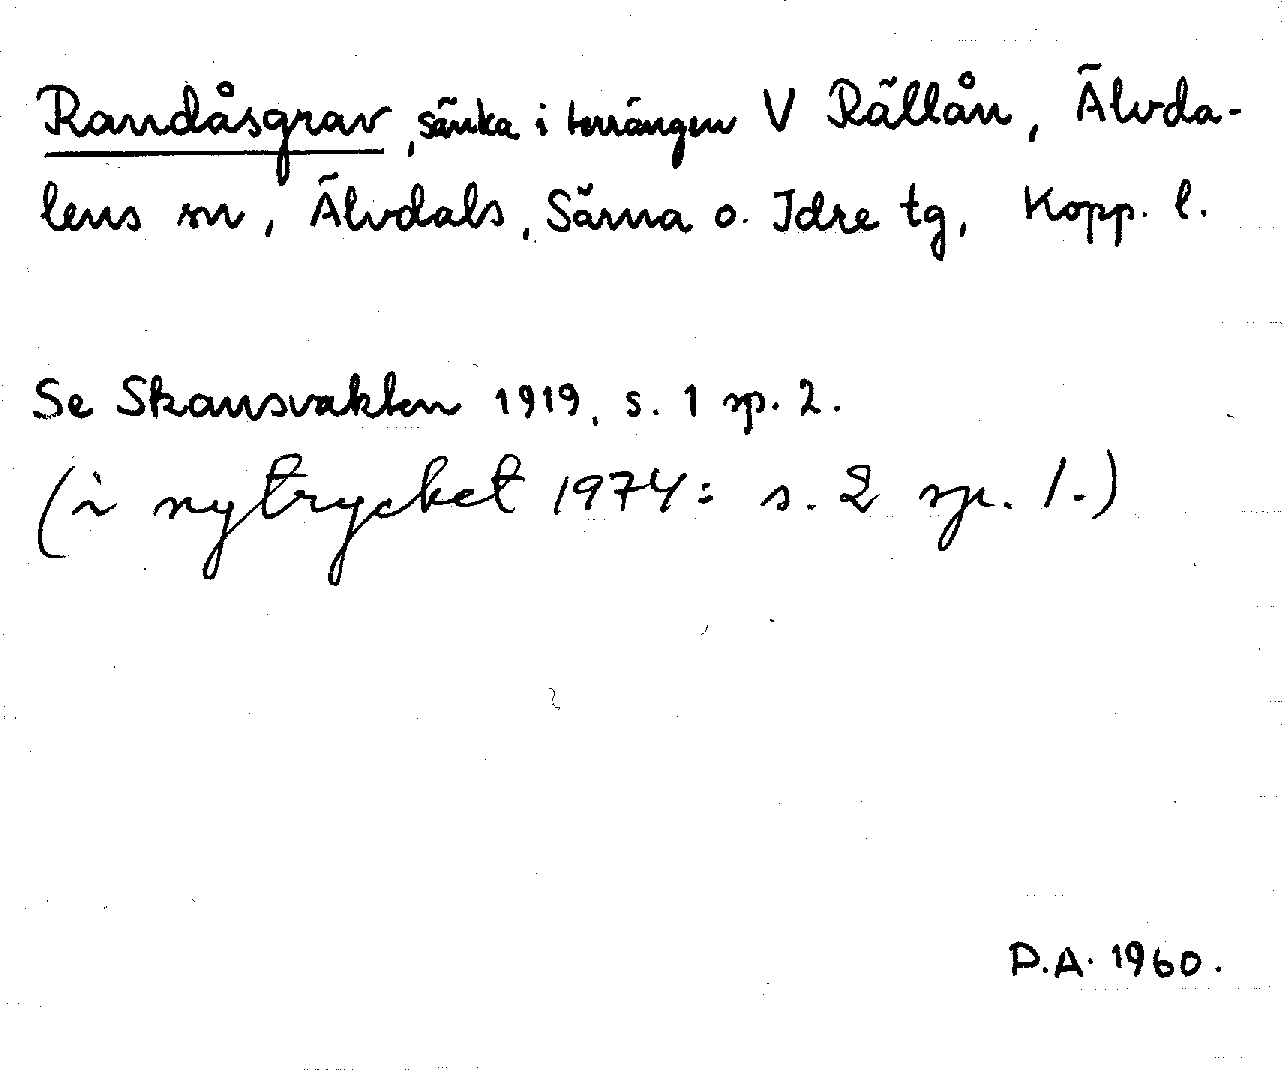 Randåsgrav, sänka i terrängen V Rällån, Älvda-
lens sn, Älvdals, Särna o. Idre tg, Kopp. l.
Se Skansvakten 1919, s. 1 sp. 2.
(i nytrycket 1974: s. 2 sp. 1.)
P.A. 1960.